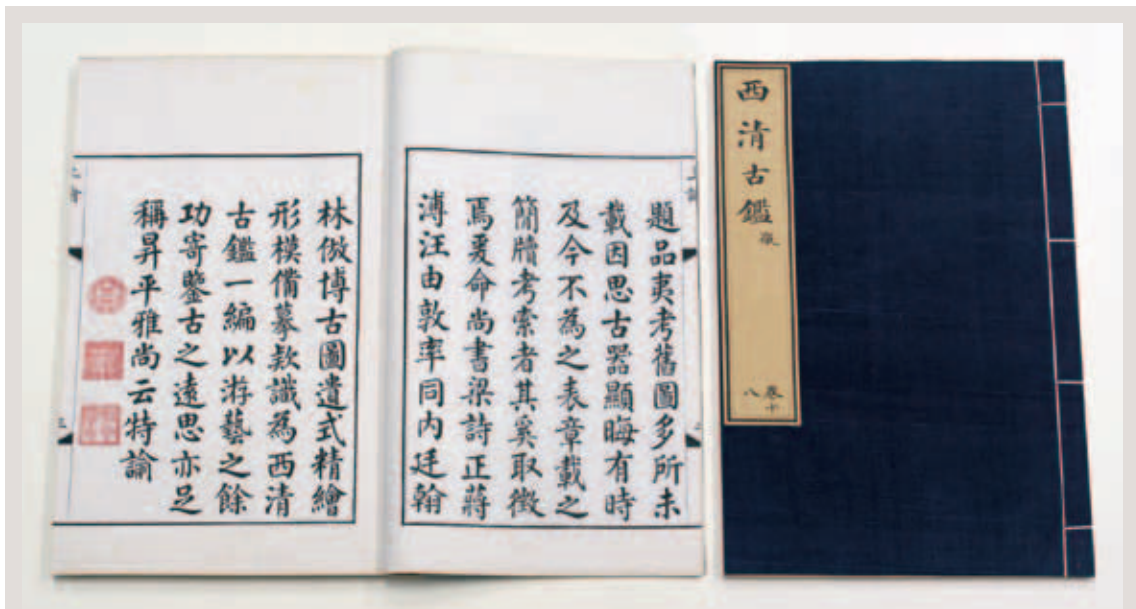 西清古鑑
卷十八
上諭
題品夷考舊圖多所未
載因思古器顯晦有時
及今不為之表章載之
簡牘考索者其奚取徵
焉爰命尚書梁詩正蔣
溥汪由敦率同内廷翰
林倣博古圖遺式精繪
形模備摹款識為西清
古鑑一編以游藝之餘
功寄鑒古之遠思亦足
稱昇平雅尚云特諭